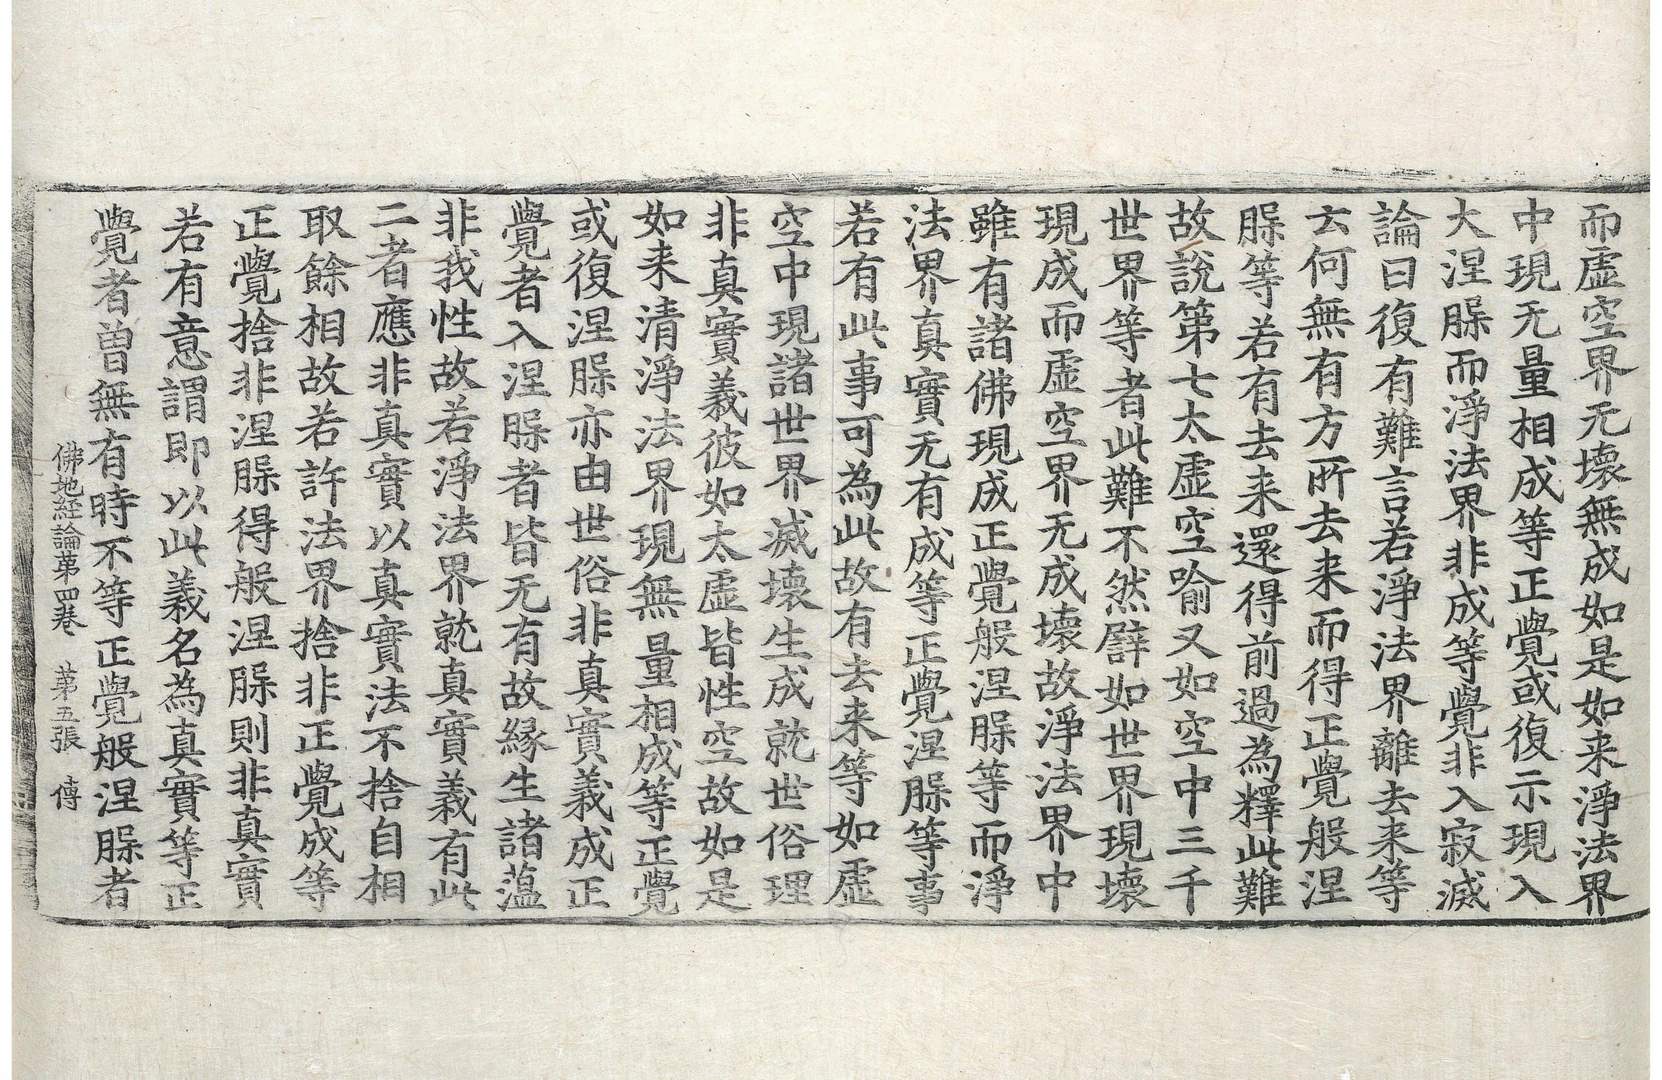 而虛空界无壞無成如是如来淨法界
中現无量相成等正覺或復示現入
大涅槃而淨法界非成等覺非入寂滅
論曰復有難言若淨法界離去来等
云何無有方所去来而得正覺般涅
槃等若有去来還得前過為釋此難
故說第七太虛空喻又如空中三千
世界等者此難不然譬如世界現壞
現成而虛空界无成壞故淨法界中
雖有諸佛現成正覺般涅槃等而淨
法界真實无有成等正覺涅槃等事
若有此事可為此故有去来等如虛
空中現諸世界滅壞生成就世俗理
非真實義彼如太虛皆性空故如是
如来清淨法界現無量相成等正覺
或復涅槃亦由世俗非真實義成正
覺者入涅槃者皆无有故緣生諸蕰
非我性故若淨法界就真實義有此
二者應非真實以真實法不捨自相
取餘相故若許法界捨非正覺成等
正覺捨非涅槃得般涅槃則非真實
若有意謂即以此義名為真實等正
覺者曾無有時不等正覺般涅槃者
佛地経論苐四卷　苐五張　傳